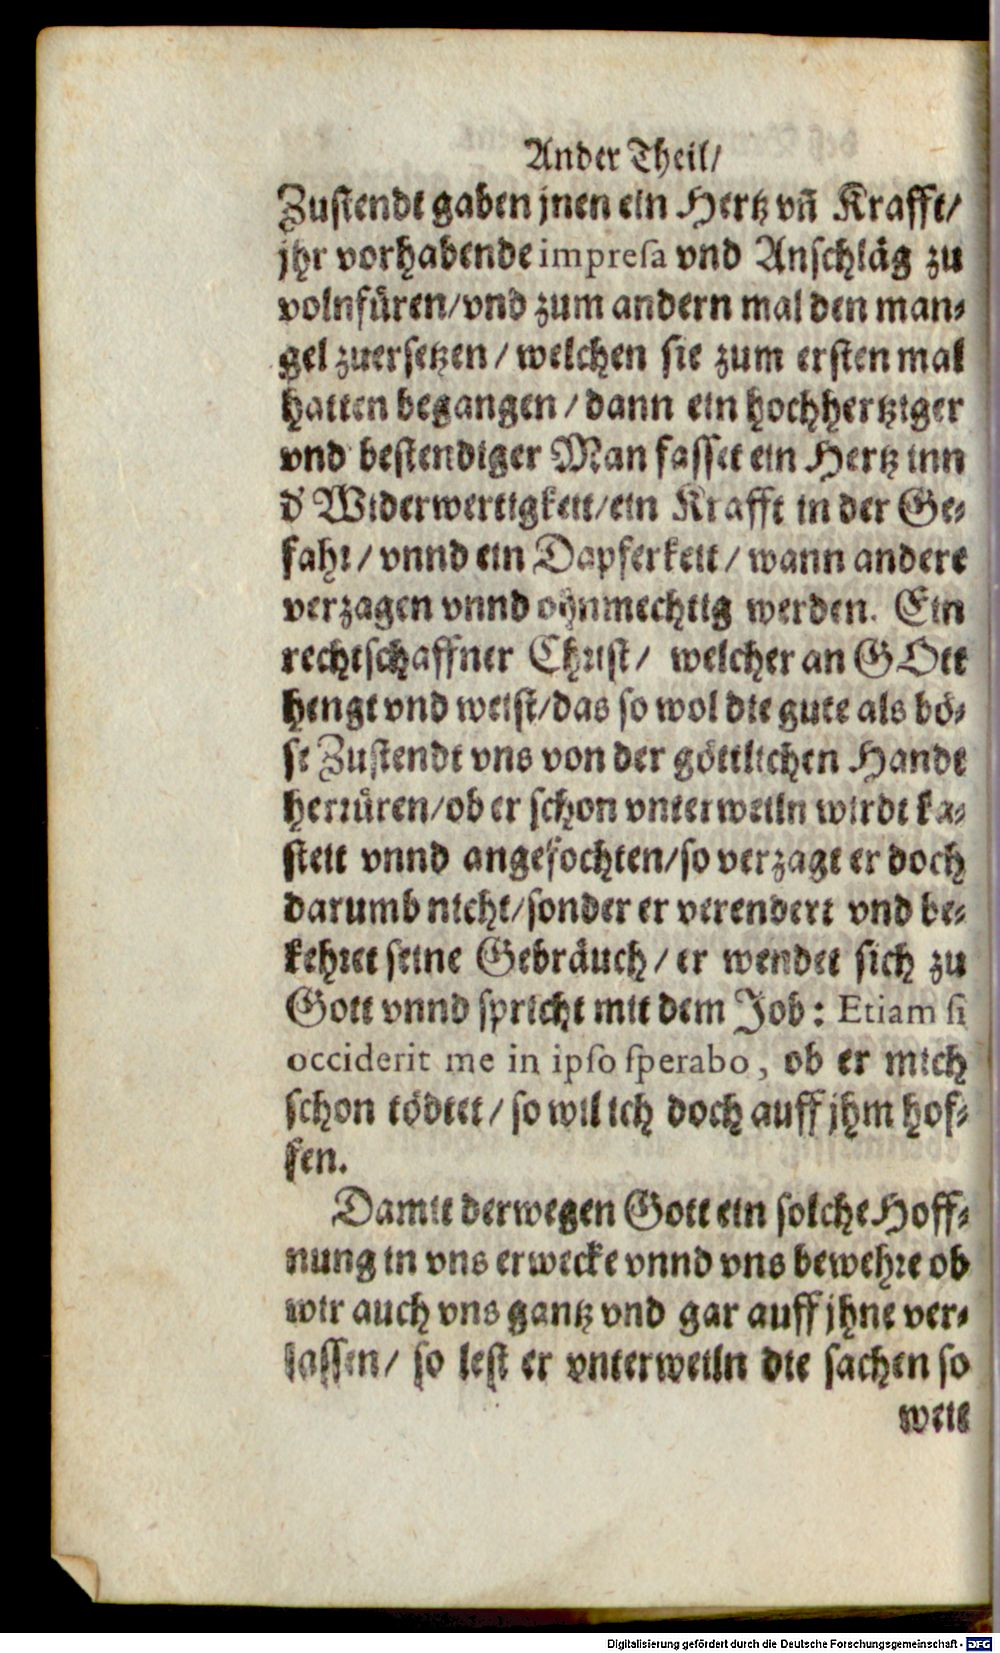 Ander Theil/
Zustendt gaben jnen ein Hertz vñ Krafft/
jhr vorhabende impresa vnd Anschläg zu
volnfüren/vnd zum andern mal den man-
gel zuersetzen/ welchen sie zum ersten mal
hatten begangen/ dann ein hochhertziger
vnd bestendiger Man fasset ein Hertz inn
d' Widerwertigkeit/ein Krafft in der Ge-
fahr/ vnnd ein Dapferkeit/ wann andere
verzagen vnnd ohnmechtig werden. Ein
rechtschaffner Christ/ welcher an GOtt
hengt vnd weist/das so wol die gute als bö-
se Zustendt vns von der göttlichen Handt
herrüren/ob er schon vnterweiln wirdt ka-
steit vnnd angefochten/so verzagt er doch
darumb nicht/sonder er verendert vnd be-
kehret seine Gebräuch/ er wendet sich zu
Gott vnnd spricht mit dem Job: Etiam si
occiderit me in ipso sperabo, ob er mich
schon tödtet/ so wil ich doch auff jhm hof-
fen.
Damit derwegen Gott ein solche Hoff-
nung in vns erwecke vnnd vns bewehre ob
wir auch vns gantz vnd gar auff jhne ver-
lassen/ so lest er vnterweiln die sachen so
weit
Digitalisierung gefördert durch die Deutsche Forschungsgemeinschaft - DFG